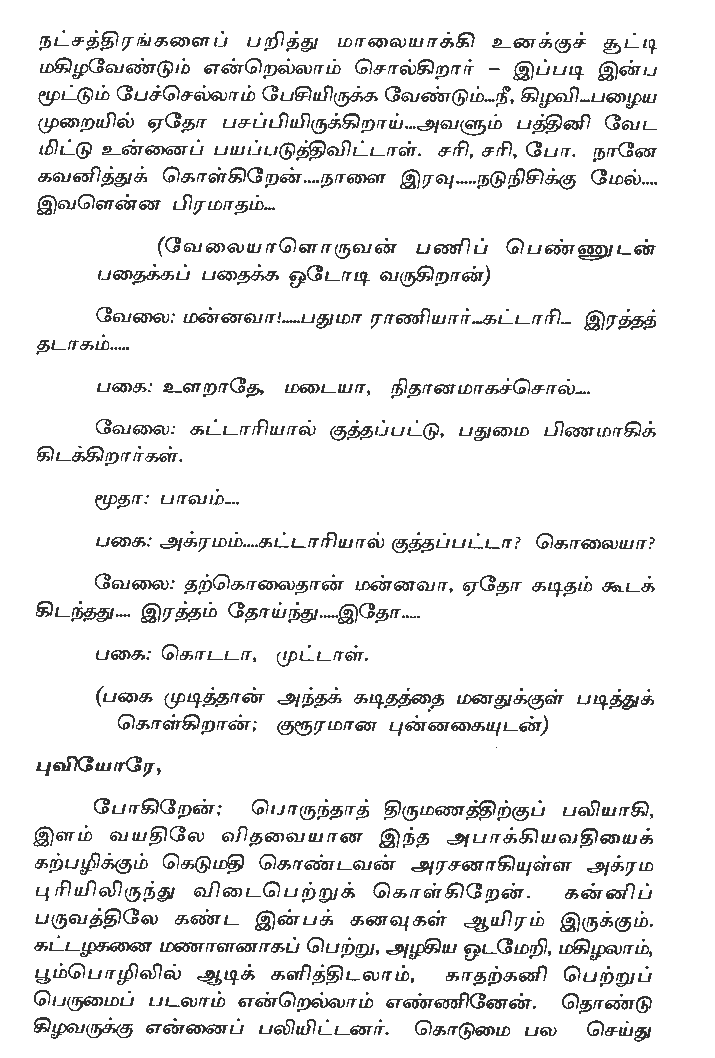 நட்சத்திரங்களைப் பறித்து மாலையாக்கி உனக்குச் சூட்டி
மகிழவேண்டும் என்றெல்லாம் சொல்கிறார் – இப்படி இன்ப
மூட்டும் பேச்செல்லாம் பேசியிருக்க வேண்டும்...நீ, கிழவி...பழைய
முறையில் ஏதோ பசப்பியிருக்கிறாய்...அவளும் பத்தினி வேட
மிட்டு உன்னைப் பயப்படுத்திவிட்டாள். சரி, சரி, போ. நானே
கவனித்துக் கொள்கிறேன்....நாளை இரவு.....நடுநிசிக்கு மேல்....
இவளென்ன பிரமாதம்...
(வேலையாளொருவன் பணிப் பெண்ணுடன்
பதைக்கப் பதைக்க ஓடோடி வருகிறான்)
வேலை: மன்னவா!.....பதுமா ராணியார்...கட்டாரி... இரத்தத்
தடாகம்.....
பகை: உளறாதே, மடையா, நிதானமாகச்சொல்....
வேலை: கட்டாரியால் குத்தப்பட்டு, பதுமை பிணமாகிக்
கிடக்கிறார்கள்.
மூதா: பாவம்...
பகை: அக்ரமம்....கட்டாரியால் குத்தப்பட்டா? கொலையா?
வேலை: தற்கொலைதான் மன்னவா, ஏதோ கடிதம் கூடக்
கிடந்தது.... இரத்தம் தோய்ந்து.....இதோ.....
பகை: கொடடா, முட்டாள்.
(பகை முடித்தான் அந்தக் கடிதத்தை மனதுக்குள் படித்துக்
கொள்கிறான்; குரூரமான புன்னகையுடன்)
புவியோரே,
போகிறேன்; பொருந்தாத் திருமணத்திற்குப் பலியாகி,
இளம் வயதிலே விதவையான இந்த அபாக்கியவதியைக்
கற்பழிக்கும் கெடுமதி கொண்டவன் அரசனாகியுள்ள அக்ரம
புரியிலிருந்து விடைபெற்றுக் கொள்கிறேன். கன்னிப்
பருவத்திலே கண்ட இன்பக் கனவுகள் ஆயிரம் இருக்கும்.
கட்டழகனை மணாளனாகப் பெற்று, அழகிய ஓடமேறி, மகிழலாம்,
பூம்பொழிலில் ஆடிக் களித்திடலாம், காதற்கனி பெற்றுப்
பெருமைப் படலாம் என்றெல்லாம் எண்ணினேன். தொண்டு
கிழவருக்கு என்னைப் பலியிட்டனர். கொடுமை பல செய்து